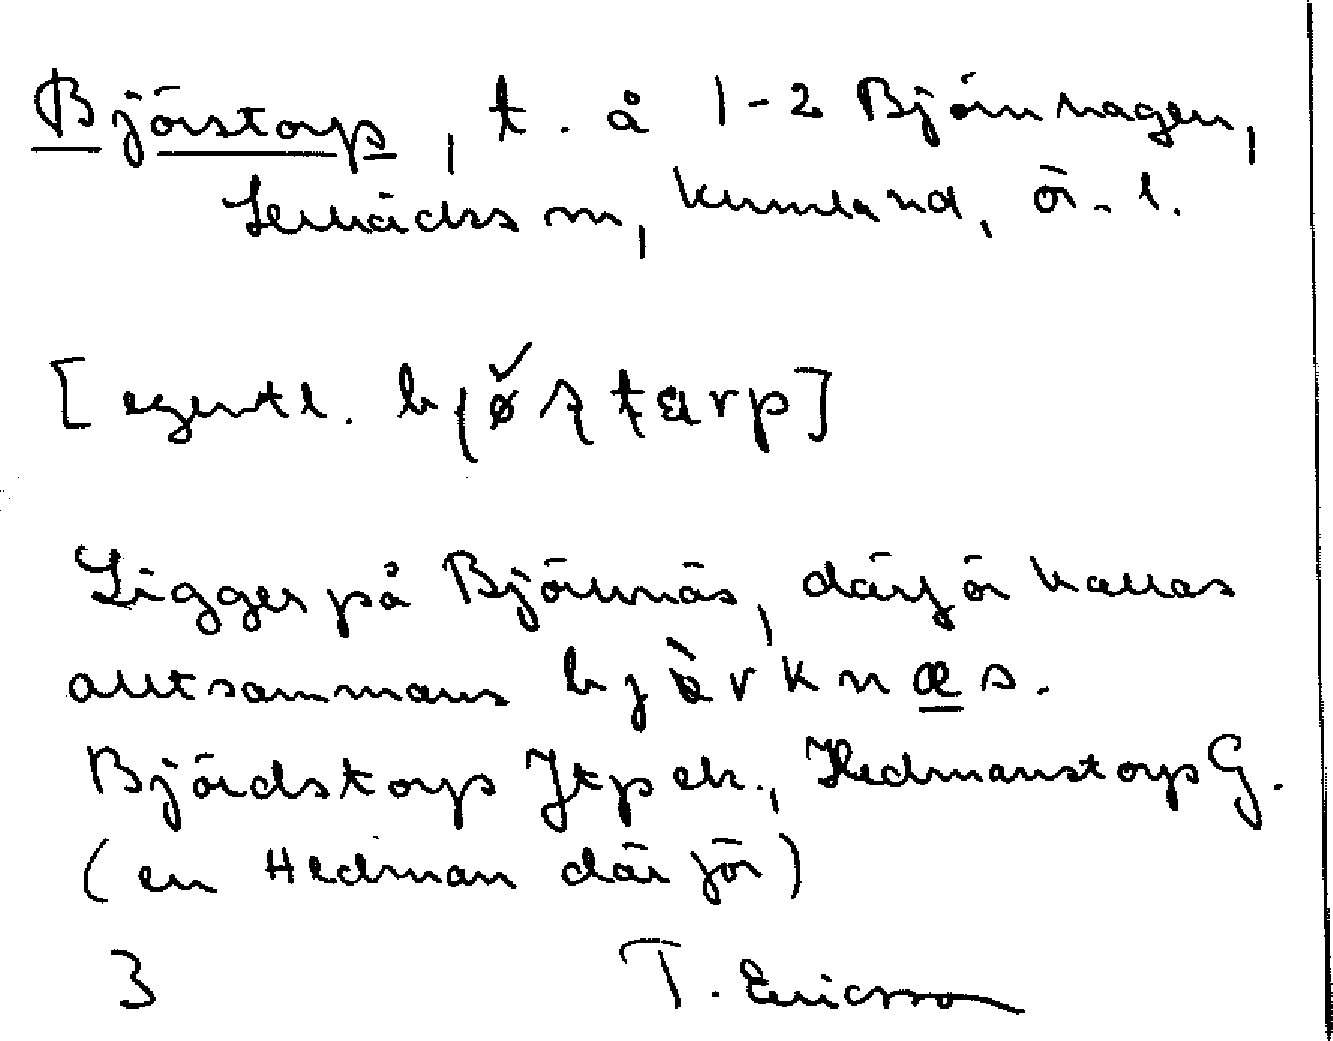 Björstorp, t. å 1-2 Björnhagen,
Lerbäcks sn, Kumla hd, ö. l.
[egentl. bjøʂtarp]
Ligger på Björknäs, därför kallas
alltsammans bjòrknæs.
Björdstorp Jtp ek., Hedmanstorp G.
(en Hedman där förr)
3 T. Ericsson